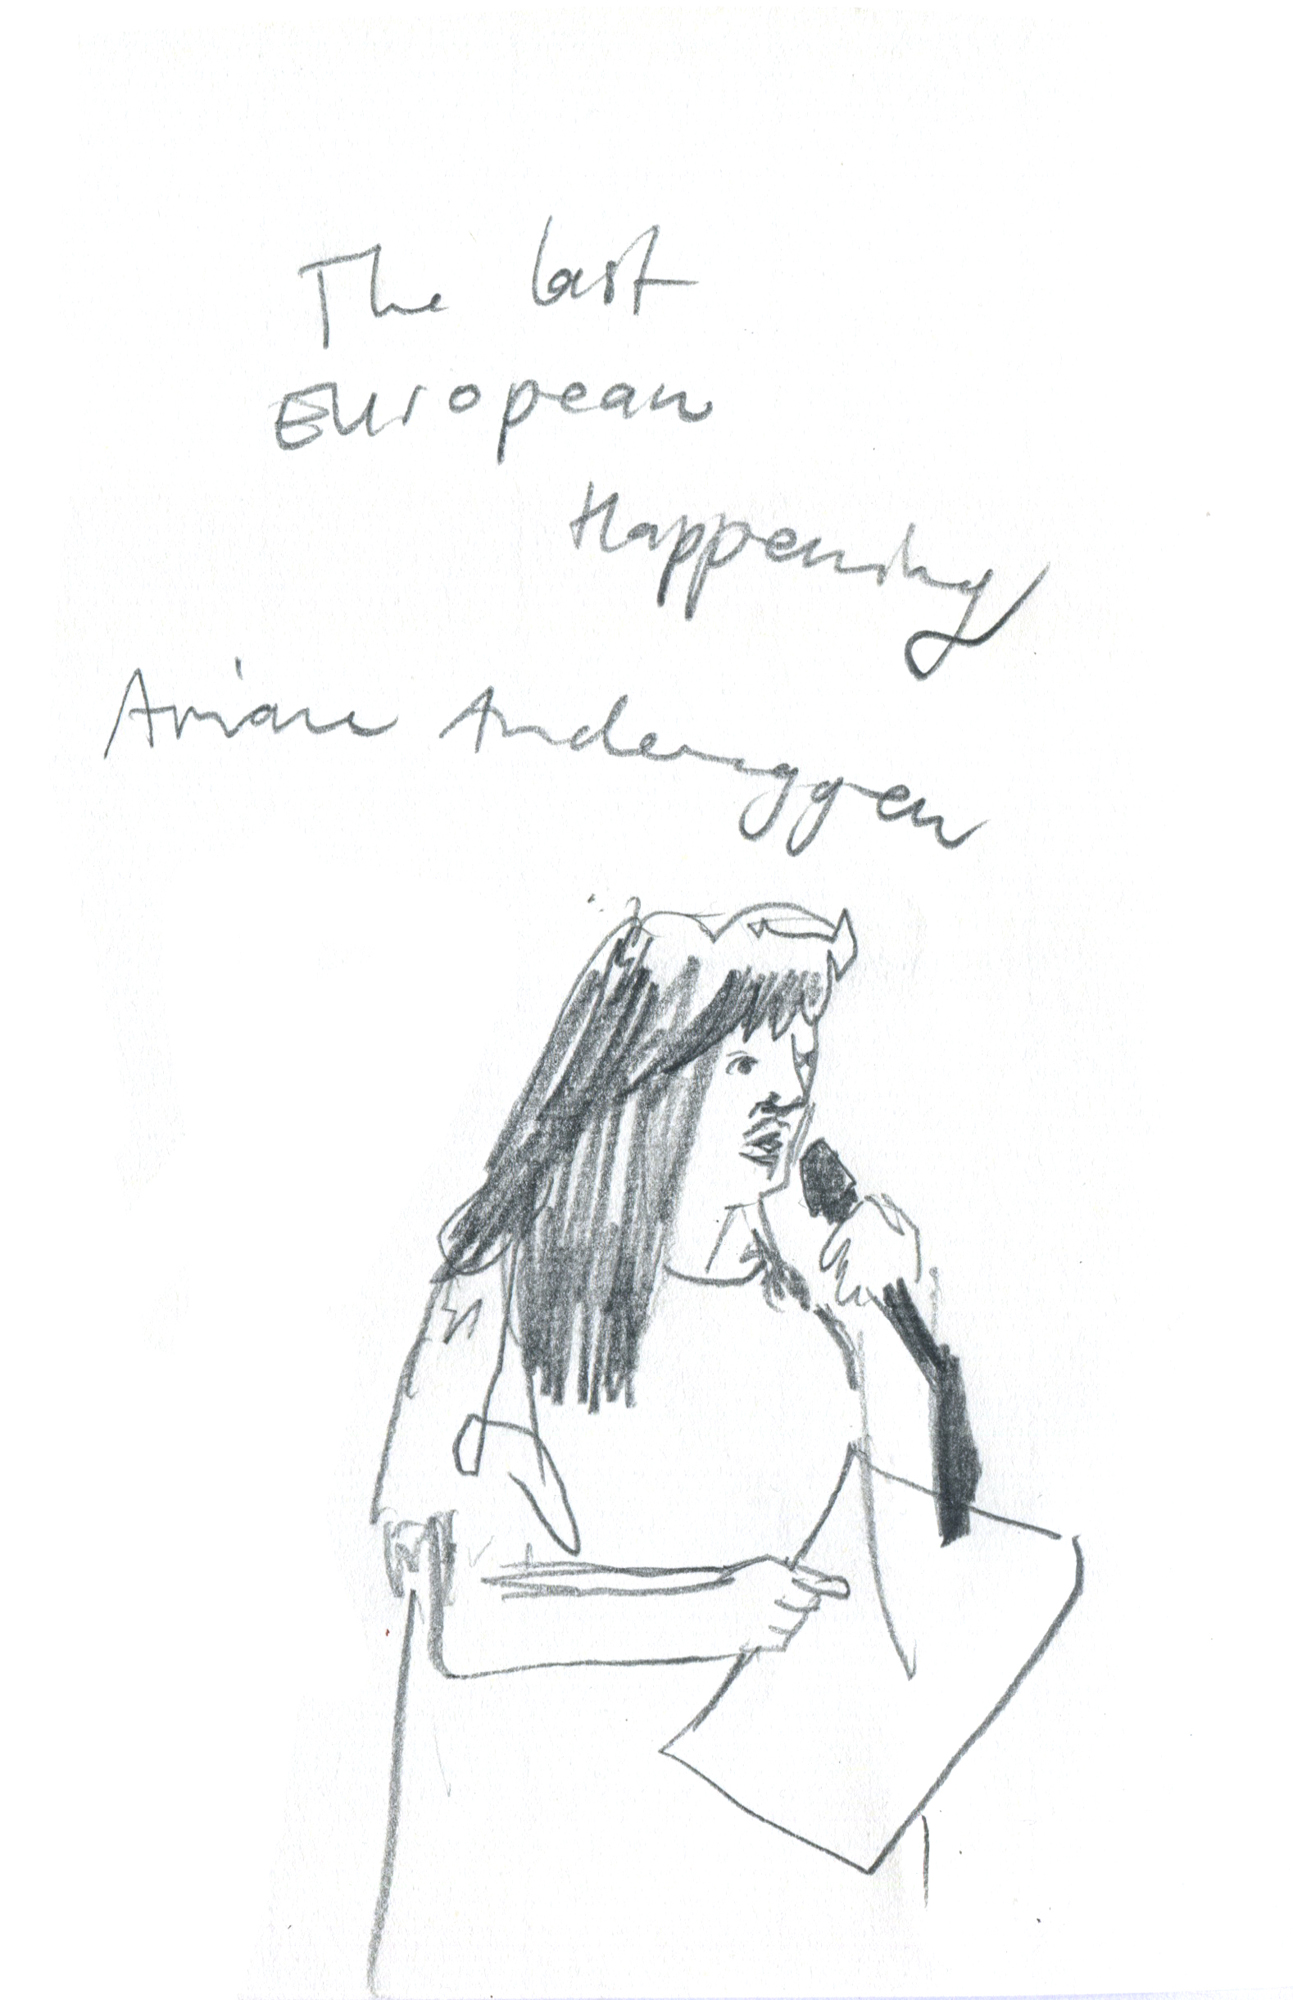 The last
European
Happening
Ariane Anderggen